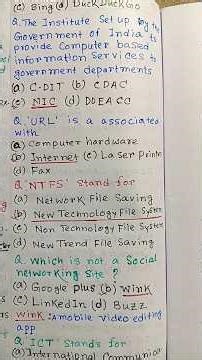 (c) Bing (d) DuckDuckGo
Q. The Institute Set up by the
Government of India to
provide Computer based
information Services to
government departments
(a) C-DIT (b) CDAC
(c) NIC (d) DOEACC
Q. 'URL' is a associated
with
(a) Computer hardware
(b) Internet (c) Laser Printer
(d) Fax
Q. 'NTFS' Stand for
(a) Network File Saving
(b) New Technology File System
(c) Non Technology File System
(d) New Trend File Saving
Q. Which is not a Social
networking Site?
(a) Google plus (b) Wink
(c) LinkedIn (d) Buzz
Wink: A mobile video editing
app
Q. ICT Stands for
(a) International Communica